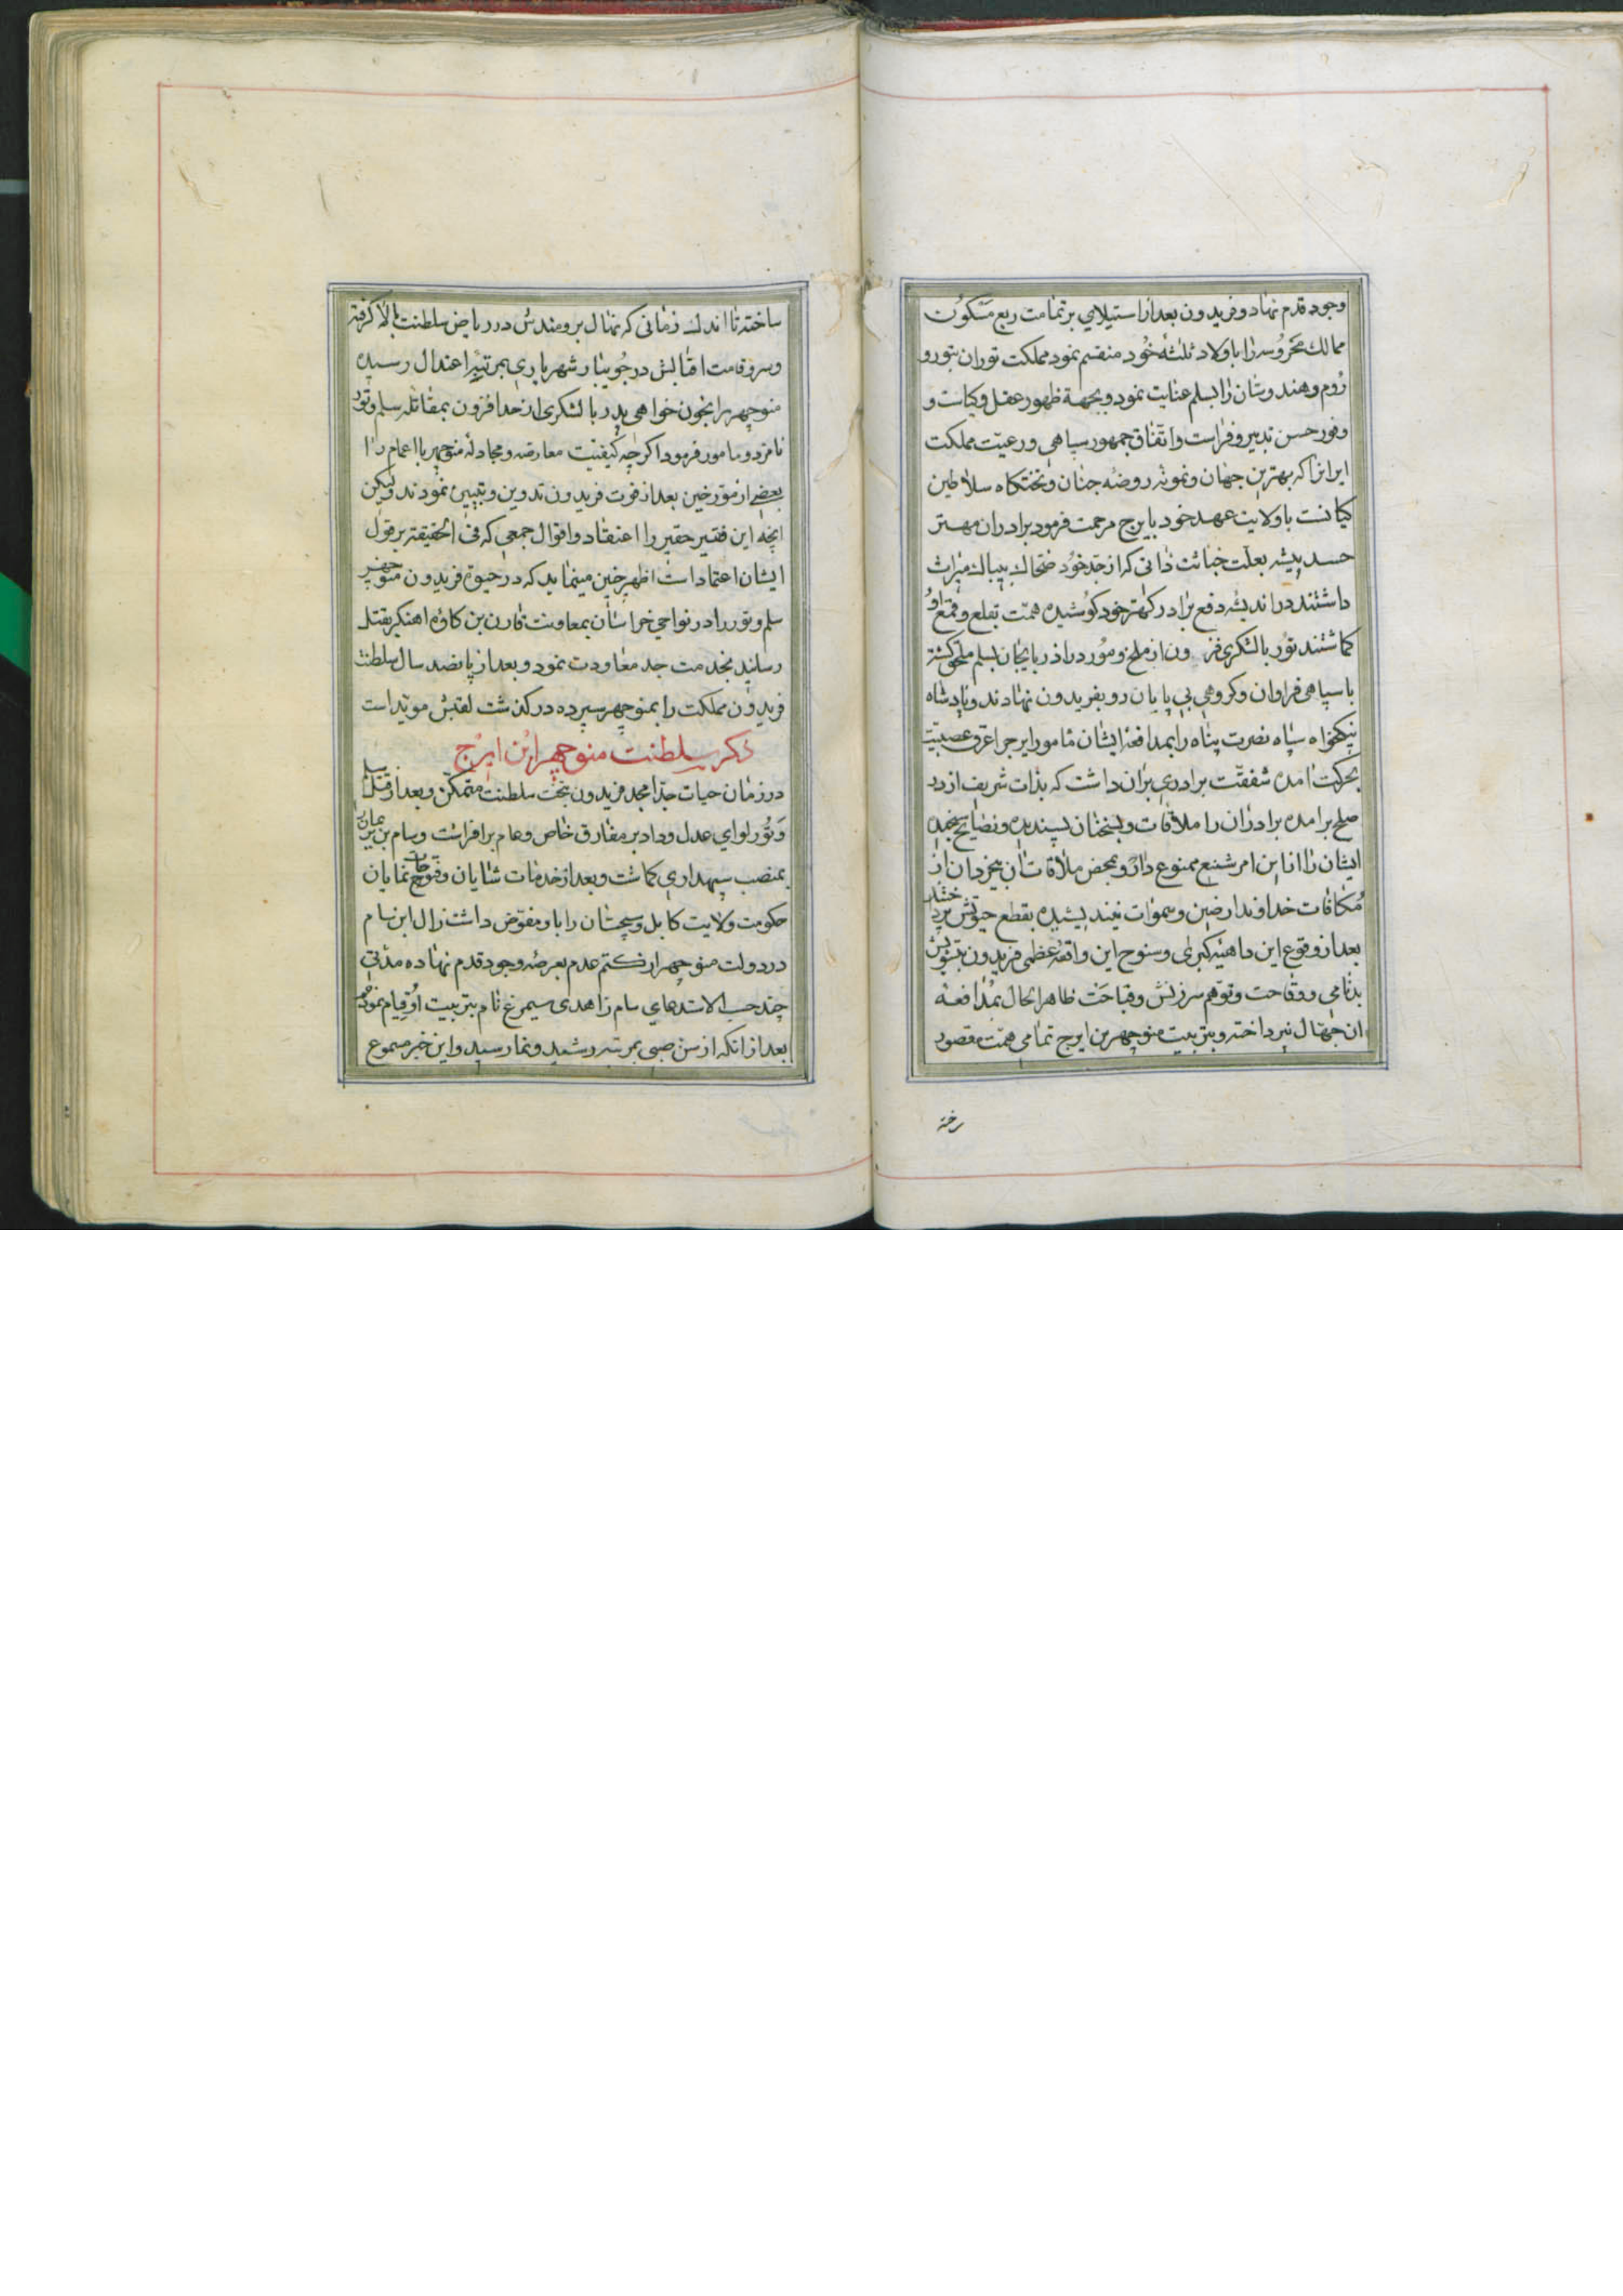 وجود قدم نهاد و فریدون بعد از استیلای بر تمامت ربع مسکون
ممالک محروسه را با ولاد ثلثه خود منقسم نمود مملکت توران بتور و
روم و هندوستان را بسلم عنایت نمود و بجهة ظهور عقل و کیاست و
وفور حسن تدبیر و فراست و اتفاق جمهور سپاهی و رعیت مملکت
ایرانرا که بهترین جهان و نمونه روضه جنان و تختکاه سلاطین
کیانست با ولایت عهد خود بایرج مرحمت فرمود برادران مهتر
حسد پیشه بعلت خباثت ذاتی که از جد خود ضحاک بیباک میراث
داشتند در اندیشه دفع برادر کهتر خود کوشیده همت بقلع و قمع او
کماشتند تور با لشکری فزون از ملخ و مور در اذربایجان بسلم ملحق کشته
با سپاهی فراوان و کروهی بی پایان رو بفریدون نهادند و پادشاه
نیکخواه سپاه نصرت پناه را بمدافعه ایشان مامور ایرج را عرق عصبیت
بحرکت امده شفقت برادری بران داشت که بذات شریف از در
صلح برامده برادران را ملاقات و بسخنان پسندیده و نصایح سنجیده
ایشان را از این امر شنیع ممنوع دارد و بمحض ملاقات ان بیخردان از
مکافات خداوند ارضین و سموات نیندیشیده بقطع حیوتش پرداختند
بعد از وقوع این داهیه کبری و سنوح این واقعه عظمی فریدون بتشویش
بدنامی و وقاحت و توهم سرزنش و قباحت ظاهرا بحال بمدافعه
ان جهال نپرداخته و بتربیت منوچهر بن ایرج تمامی همت مقصور
ساخته تا اندک زمانی که نهال برومندش در ریاض سلطنت بالا کرفته
و سرو قامت اقبالش در جویبار شهریاری بمرتبه اعتدال رسیده
منوچهر را بخون خواهی پدر با لشکری از حد افزون بمقاتله سلم و تور
نامزد و مامور فرمود اکرچه کیفیت معارضه و مجادله منوچهر با اعمام را
بعضی از مورخین بعد از فوت فریدون تدوین و تبیین نمودند ولیکن
انچه این فقیر حقیر را اعتقاد و اقوال جمعی که فی الحقیقة بر قول
ایشان اعتماد است اظهر چنین مینماید که در حیوة فریدون منوچهر
سلم و تور را در نواحی خراسان بمعاونت قارن بن کاوه اهنکر بقتل
رسانید بخدمت جد معاودت نمود و بعد از پانصد سال سلطنت
فریدون مملکت را بمنوچهر سپرده درکذشت لقبش موید است
ذکر سلطنت منوچهر ابن ایرج
در زمان حیات جد امجد فریدون بتخت سلطنت متمکن و بعد از قتل سلم
و تور لوای عدل و داد بر مفارق خاص و عام برافراشت و سام بن نریمان را
بمنصب سپهداری کماشت و بعد از خدمات شایان و فتوحات نمایان
حکومت ولایت کابل و سیجستان را باو مفوض داشت زال ابن سام
در دولت منوچهر از کتم عدم بعرصه وجود قدم نهاده مدتی
چند حسب الاستدعای سام زاهدی سیمرغ نام بتربیت او قیام نموده
بعد از انکه از سن صبی بمرتبه رشد و نما رسید و این خبر مسموع
رخته